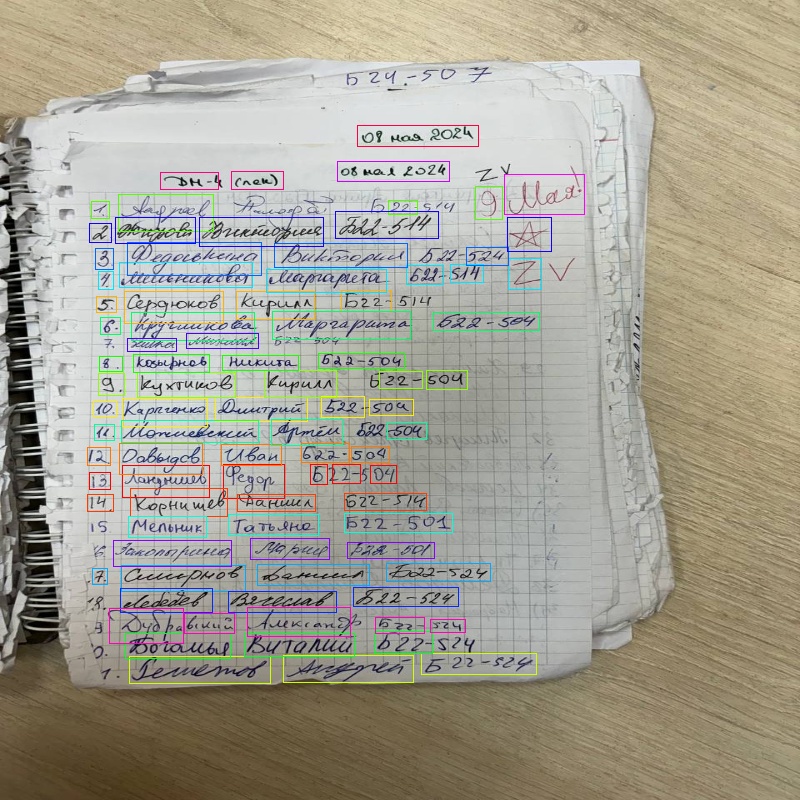 Б24-507
08 мая 2024
ДМ-4 (лек) 08 мая 2024 ZV
9 Мая!
1. Тимофей Б22-514
2 Жирова Виктория Б22-514
3. Федоскина Виктория Б22-524
4. Мельникова Маргарита Б22-514 Z V
5. Сердюков Кирилл Б22-514
6. Кругликова Маргарита Б22-504
7. Михаил Б22-504
8. Козырнов Никита Б22-504
9. Кухтиков Кирилл Б22-504
10. Карпенко Дмитрий Б22-504
11. Можиевский Артём Б22-504
12. Давыдов Иван Б22-504
13. Ландышев Федор Б22-504
14. Корнишев Даниил Б22-514
15 Мельник Татьяна Б22-501
6. Закопырина Мария Б22-501
7. Смирнов Даниил Б22-524
8. Лебедев Вячеслав Б22-524
9 Дубравский Александр Б22-524
0. Богомья Виталий Б22-524
1. Решетов Андрей Б22-524